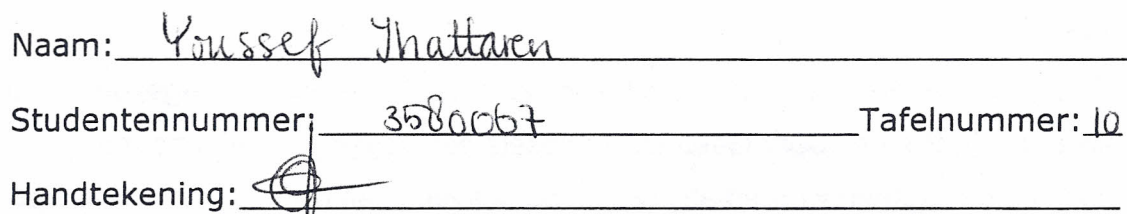 Naam: Youssef Ihattaren
Studentennummer: 3580067 Tafelnummer: 10
Handtekening: